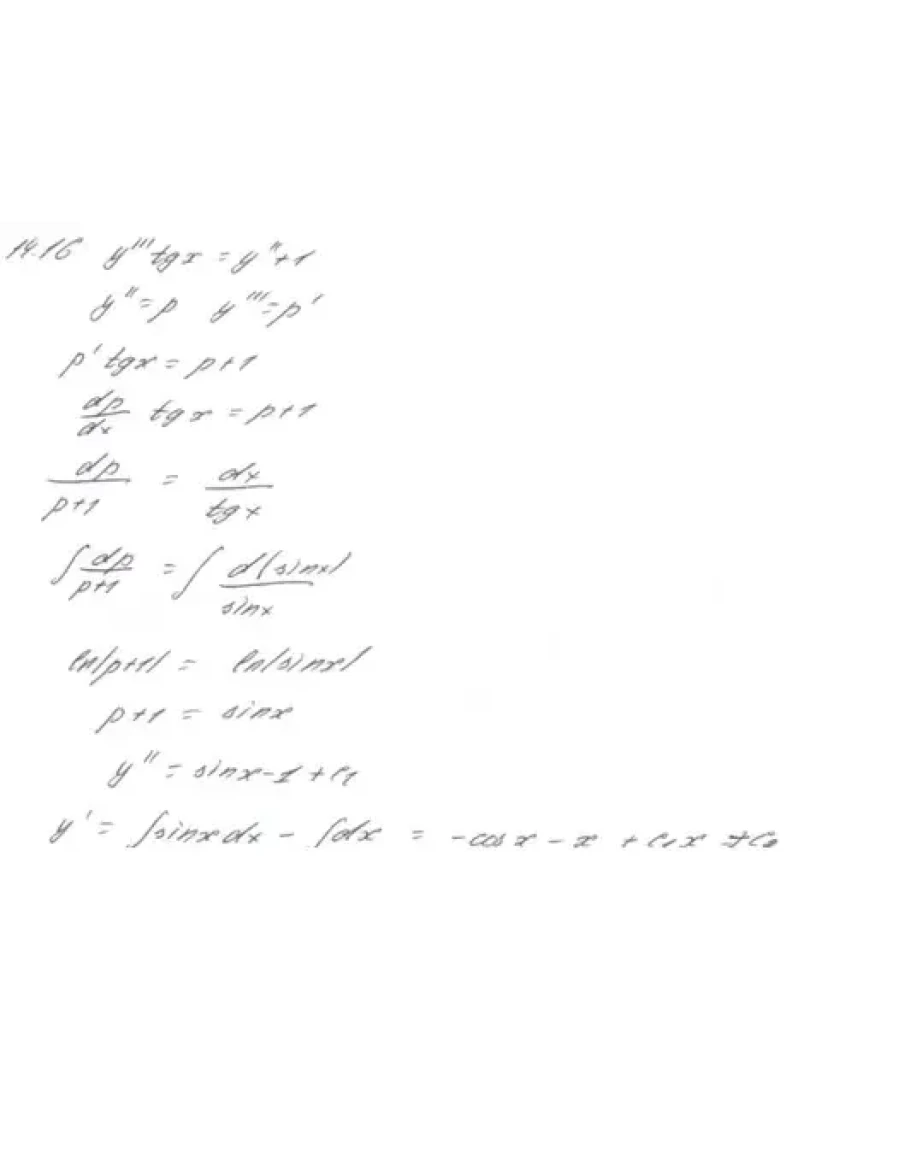 14.16 y''' tg x = y'' + 1
y'' = p y''' = p'
p' tg x = p + 1
dp/dx tg x = p + 1
dp/(p+1) = dx/tg x
∫ dp/(p+1) = ∫ d(sin x)/sin x
ln|p+1| = ln|sin x|
p + 1 = sin x
y'' = sin x - 1 + c₁
y' = ∫ sin x dx - ∫ dx = - cos x - x + c₁x + c₂